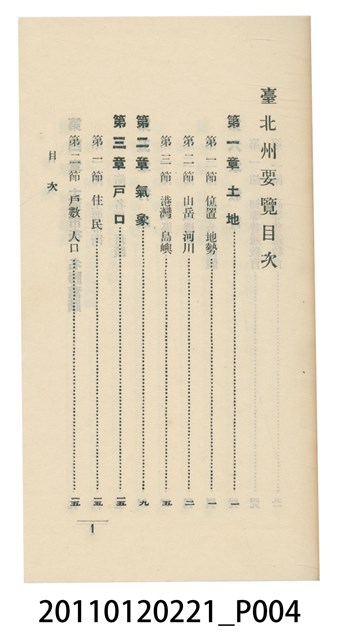 臺北州要覽目次
第一章 土地 一
第一節 位置 地勢 一
第二節 山岳 河川 二
第三節 港灣 島嶼 五
第二章 氣象 九
第三章 戶口 一五
第一節 住民 一五
第二節 戶數 人口 一五
目次
1
20110120221_P004